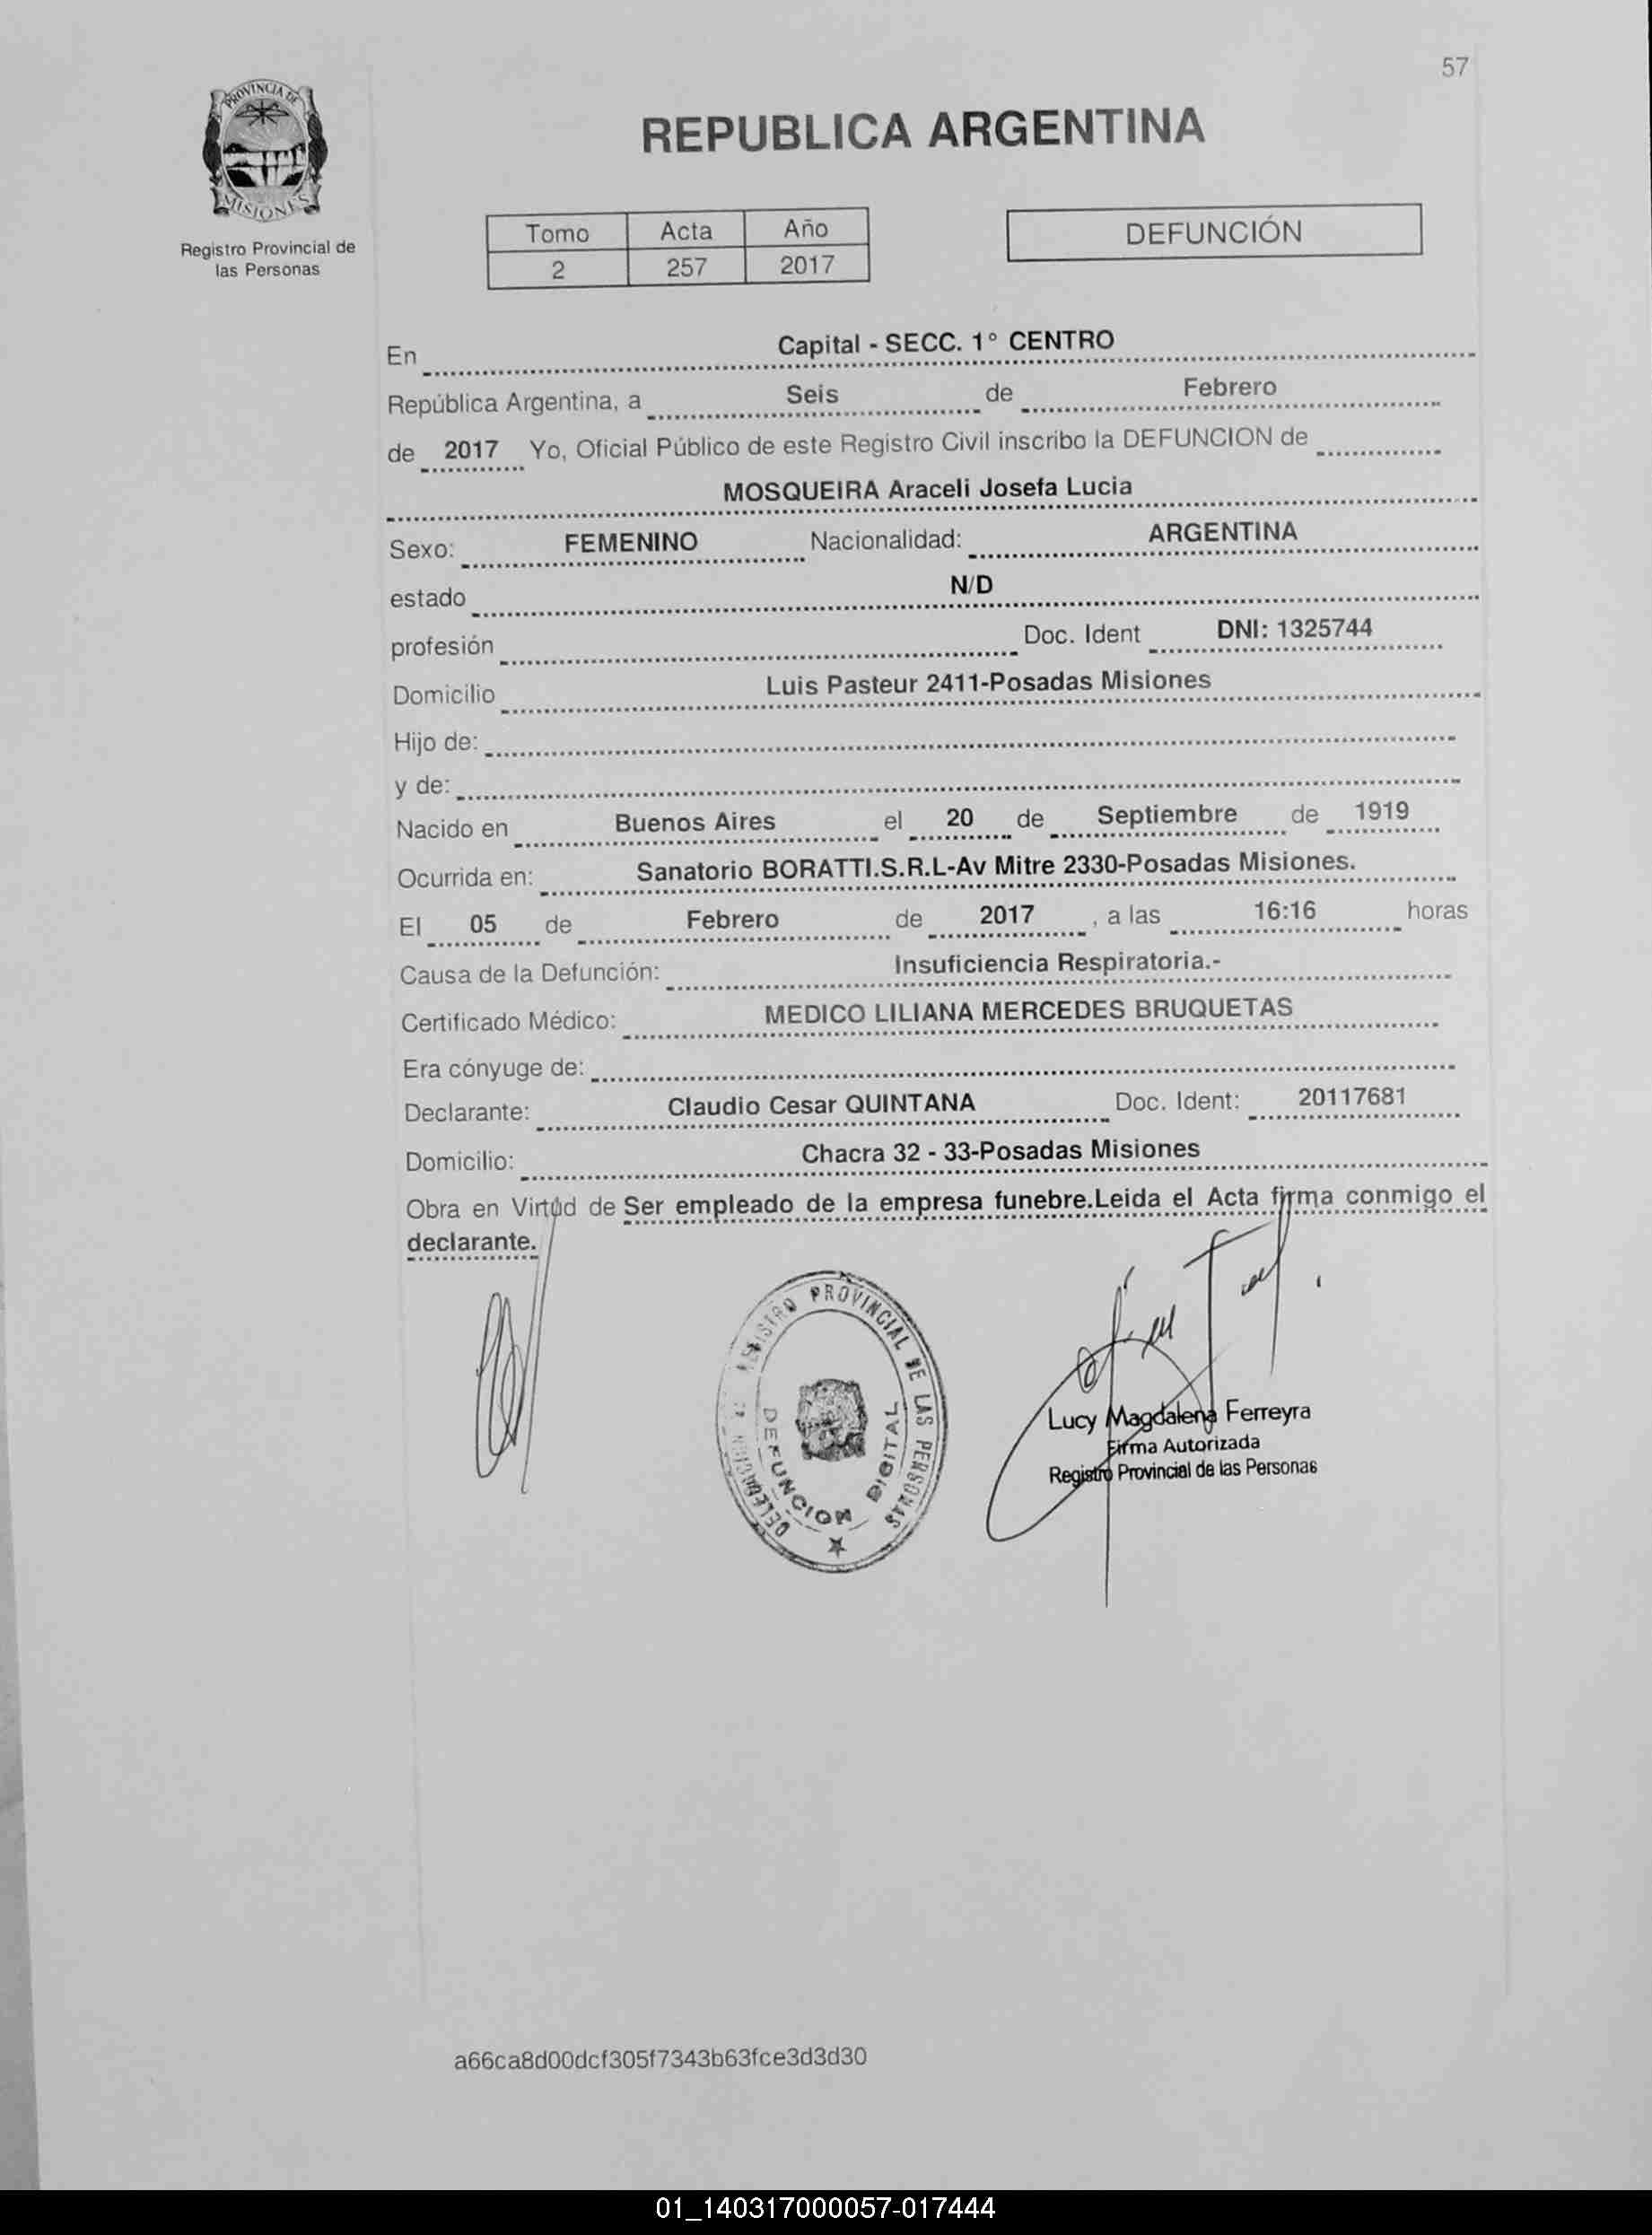 57
PROVINCIA DE
MISIONES
Registro Provincial de
las Personas
REPUBLICA ARGENTINA
Tomo Acta Año
2 257 2017
DEFUNCIÓN
En Capital - SECC. 1° CENTRO
República Argentina, a Seis de Febrero
de 2017 Yo, Oficial Público de este Registro Civil inscribo la DEFUNCION de
MOSQUEIRA Araceli Josefa Lucia
Sexo: FEMENINO Nacionalidad: ARGENTINA
estado N/D
profesión Doc. Ident DNI: 1325744
Domicilio Luis Pasteur 2411-Posadas Misiones
Hijo de:
y de:
Nacido en Buenos Aires el 20 de Septiembre de 1919
Ocurrida en: Sanatorio BORATTI.S.R.L-Av Mitre 2330-Posadas Misiones.
El 05 de Febrero de 2017 , a las 16:16 horas
Causa de la Defunción: Insuficiencia Respiratoria.-
Certificado Médico: MEDICO LILIANA MERCEDES BRUQUETAS
Era cónyuge de:
Declarante: Claudio Cesar QUINTANA Doc. Ident: 20117681
Domicilio: Chacra 32 - 33-Posadas Misiones
Obra en Virtud de Ser empleado de la empresa funebre.Leida el Acta firma conmigo el
declarante.
REGISTRO PROVINCIAL DE LAS PERSONAS
DELEGACION
DEFUNCION DIGITAL
Lucy Magdalena Ferreyra
Firma Autorizada
Registro Provincial de las Personas
a66ca8d00dcf305f7343b63fce3d3d30
01_140317000057-017444